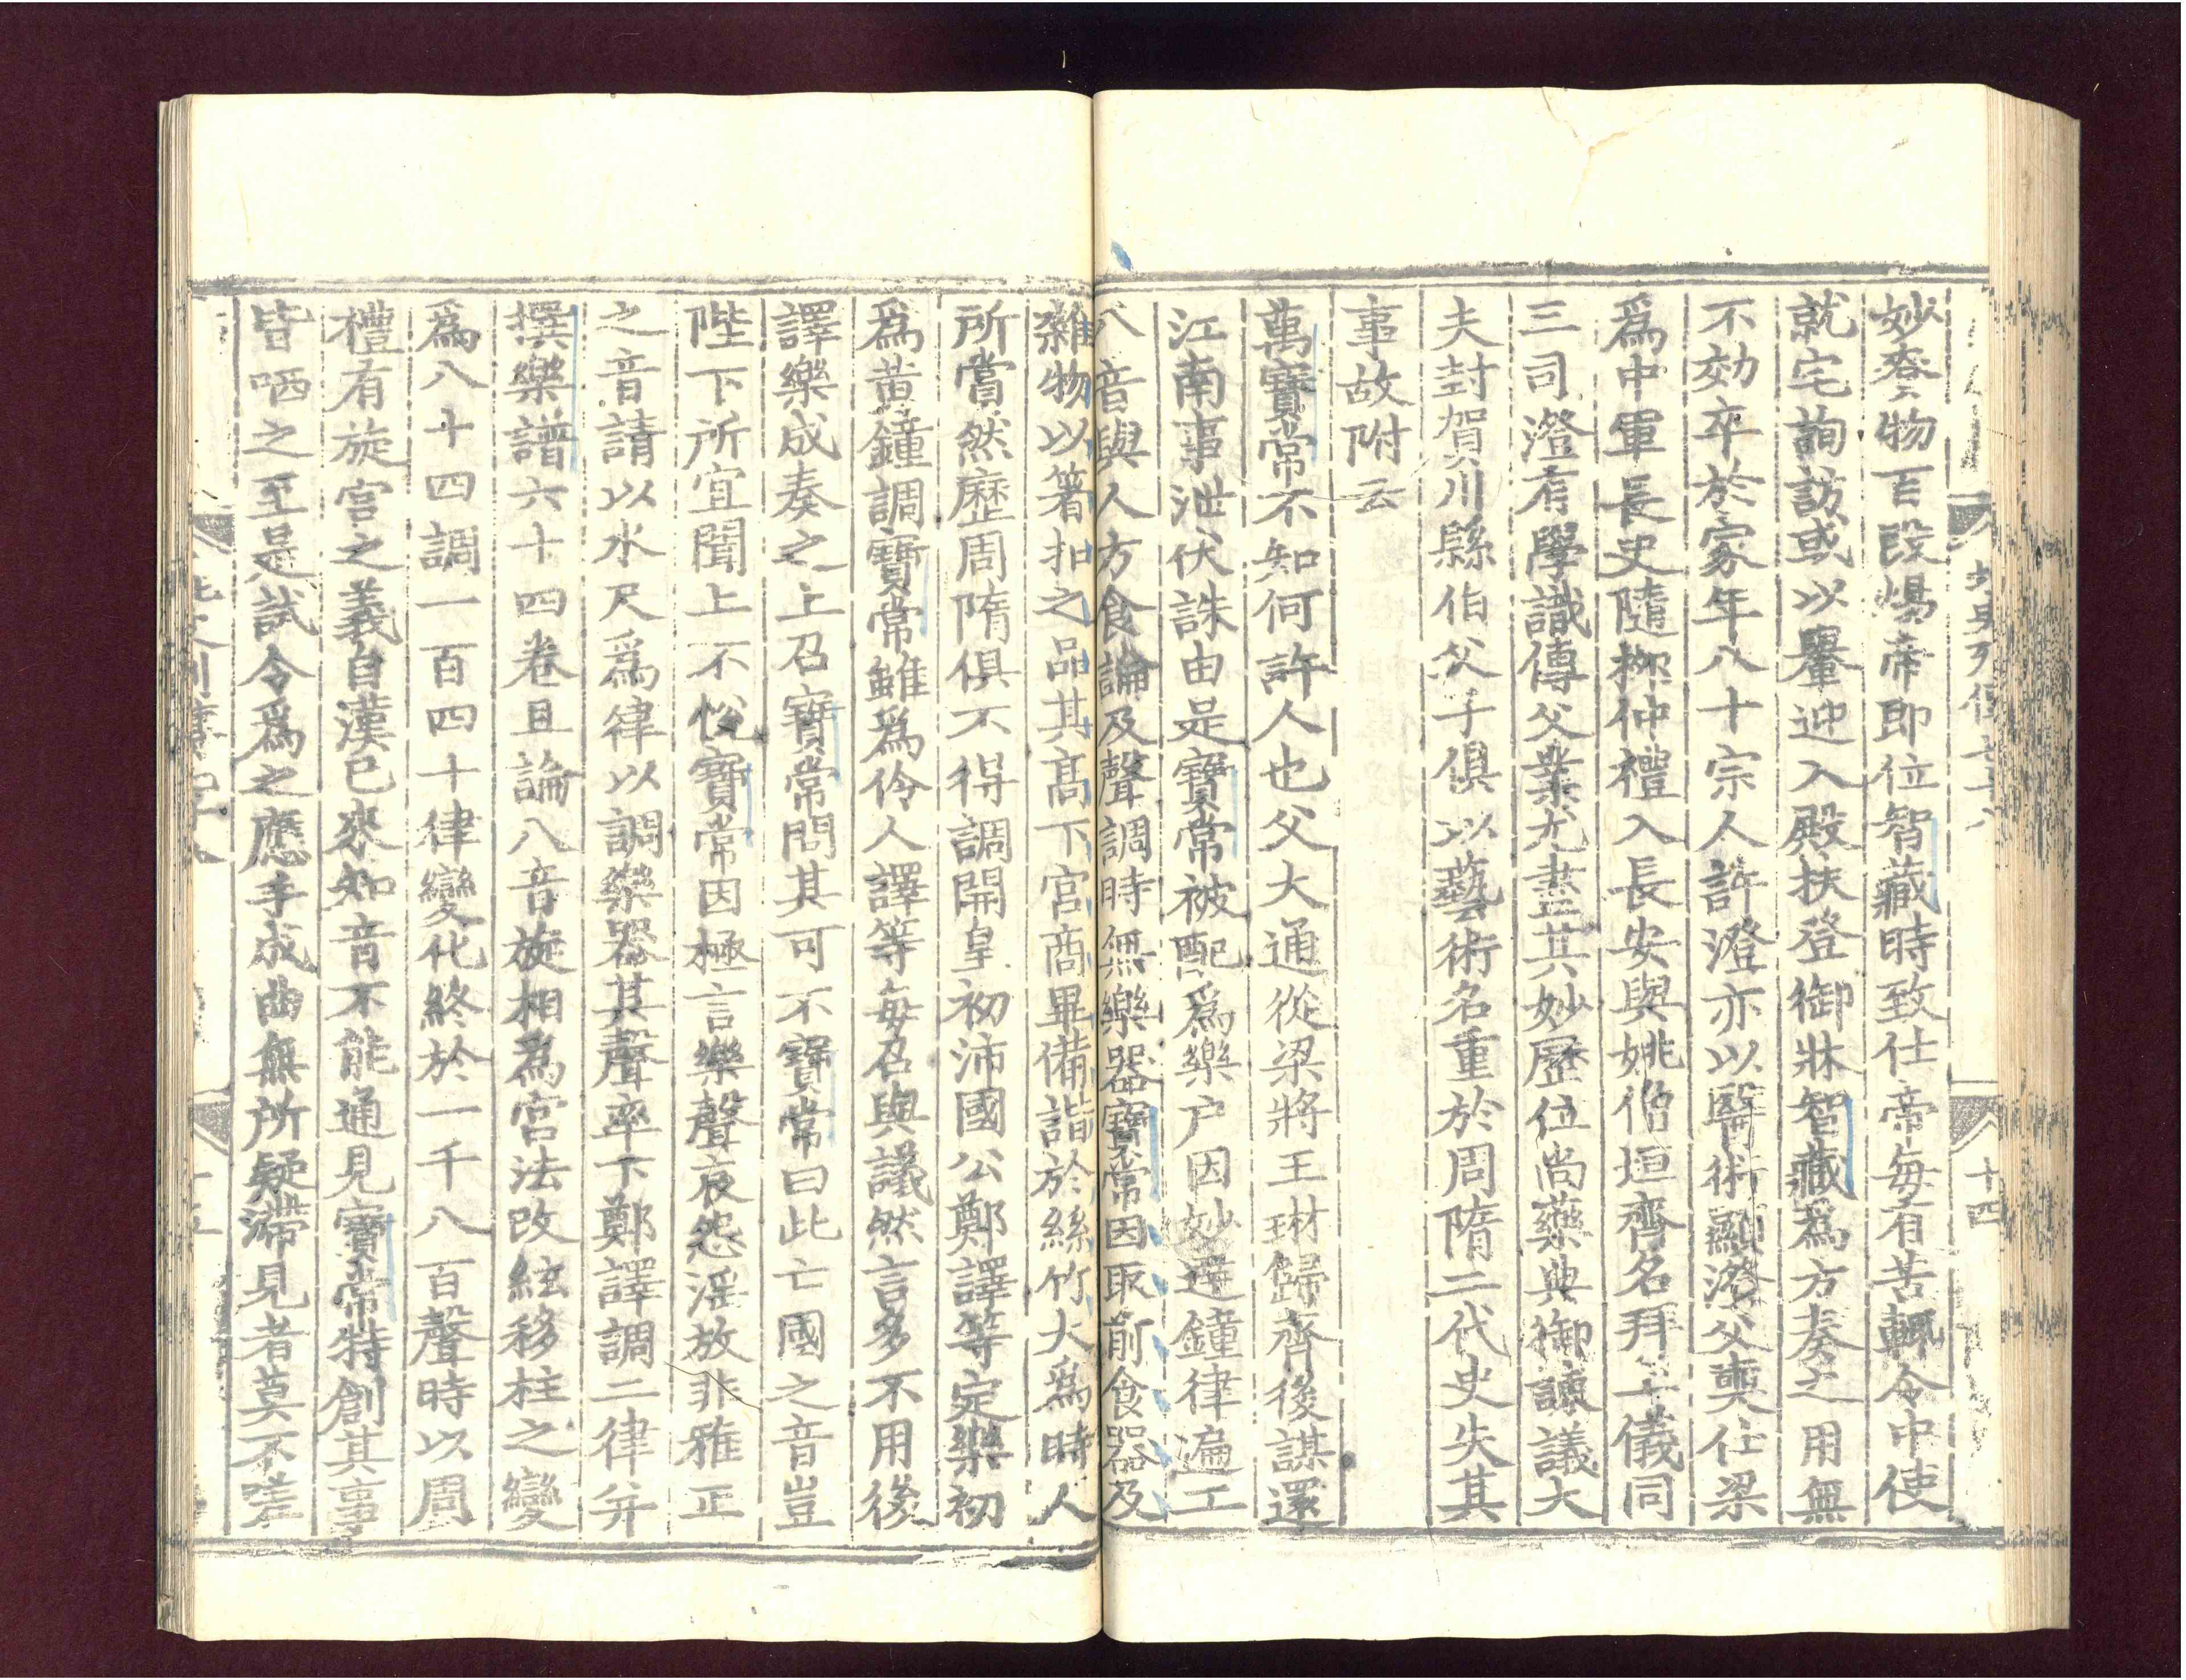 北史列傳七十八 十四
妙賚物百段煬帝即位智藏時致仕帝每有苦輒令中使
就宅詢訪或以轝迎入殿扶登御牀智藏爲方奏之用無
不効卒於家年八十宗人許澄亦以醫術顯澄父奭仕梁
爲中軍長史隨柳仲禮入長安與姚僧垣齊名拜上儀同
三司澄有學識傳父業尤盡其妙歷位尚藥典御諫議大
夫封賀川縣伯父子俱以藝術名重於周隋二代史失其
事故附云
萬寶常不知何許人也父大通從梁將王琳歸齊後謀還
江南事泄伏誅由是寶常被配爲樂户因妙達鐘律遍工
八音與人方食論及聲調時無樂器寶常因取前食器及
雜物以箸扣之品其髙下宮商畢備諧於絲竹大爲時人
所賞然歷周隋俱不得調開皇初沛國公鄭譯等定樂初
爲黄鐘調寶常雖爲伶人譯等每召與議然言多不用後
譯樂成奏之上召寶常問其可不寶常曰此亡國之音豈
陛下所宜聞上不悦寶常因極言樂聲哀怨淫放非雅正
之音請以水尺爲律以調樂器其聲率下鄭譯調二律并
撰樂譜六十四卷且論八音旋相爲宮法改絃移柱之變
爲八十四調一百四十律變化終於一千八百聲時以周
禮有旋宮之義自漢已來知音不能通見寶常特創其事
皆哂之至是試令爲之應手成曲無所疑滯見者莫不嗟
十五